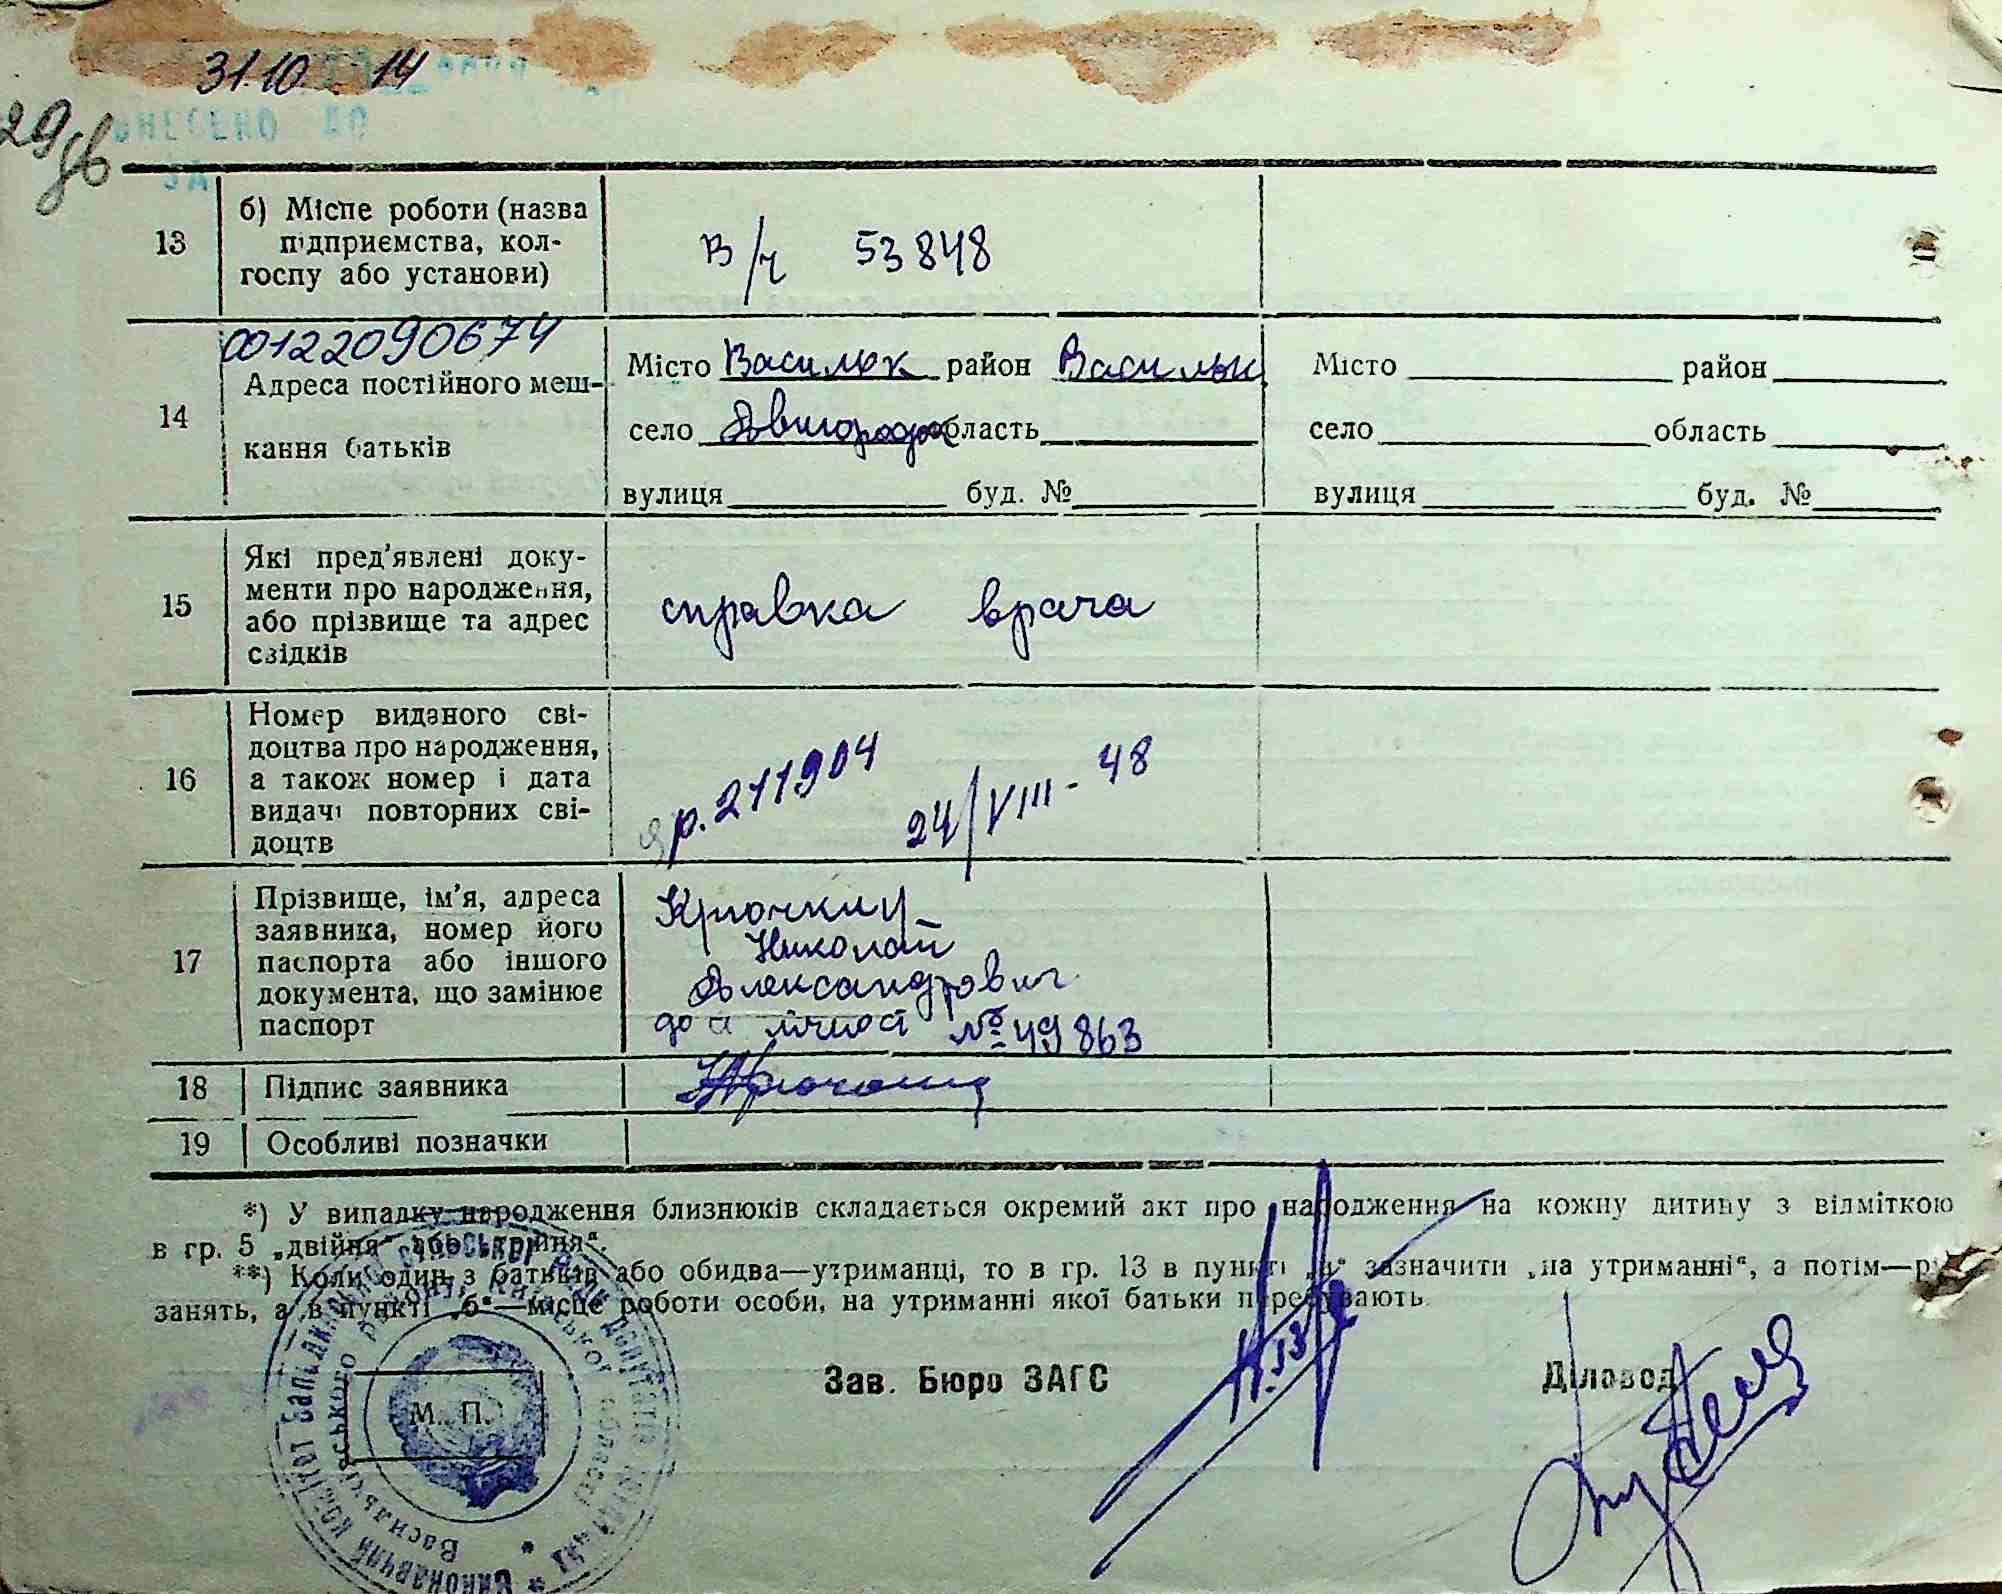 31.10 14
29
ВНЕСЕНО ДО
ЗА
13
б) Місце роботи (назва
підприємства, кол-
госпу або установи)
в/ч 53848
00122090674
14
Адреса постійного меш-
кання батьків
Місто Васильк район Васильк
село область
вулиця буд. №
Місто район
село область
вулиця буд. №
15
Які пред'явлені доку-
менти про народження,
або прізвище та адрес
свідків
справка врача
16
Номер виданого сві-
доцтва про народження,
а також номер і дата
видачі повторних сві-
доцтв
р. 211904
24/VIII-48
17
Прізвище, ім'я, адреса
заявника, номер його
паспорта або іншого
документа, що замінює
паспорт
Крючкин
Николай
Александрович
№ 49863
18
Підпис заявника
19
Особливі позначки
*) У випадку народження близнюків складається окремий акт про народження на кожну дитину з відміткою
в гр. 5 „двійня“ або „трійня“.
**) Коли один з батьків або обидва—утриманці, то в гр. 13 в пункті „а“ зазначити „на утриманні“, а потім—рід
занять, а в пункті „б“—місце роботи особи, на утриманні якої батьки перебувають.
Зав. Бюро ЗАГС
Діловод
М. П.
Виконавчий комітет
Васильківського району, Київської області